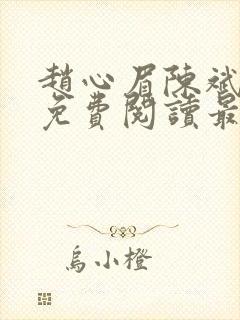 趙心眉陳斌
免費閱讀最
烏小橙